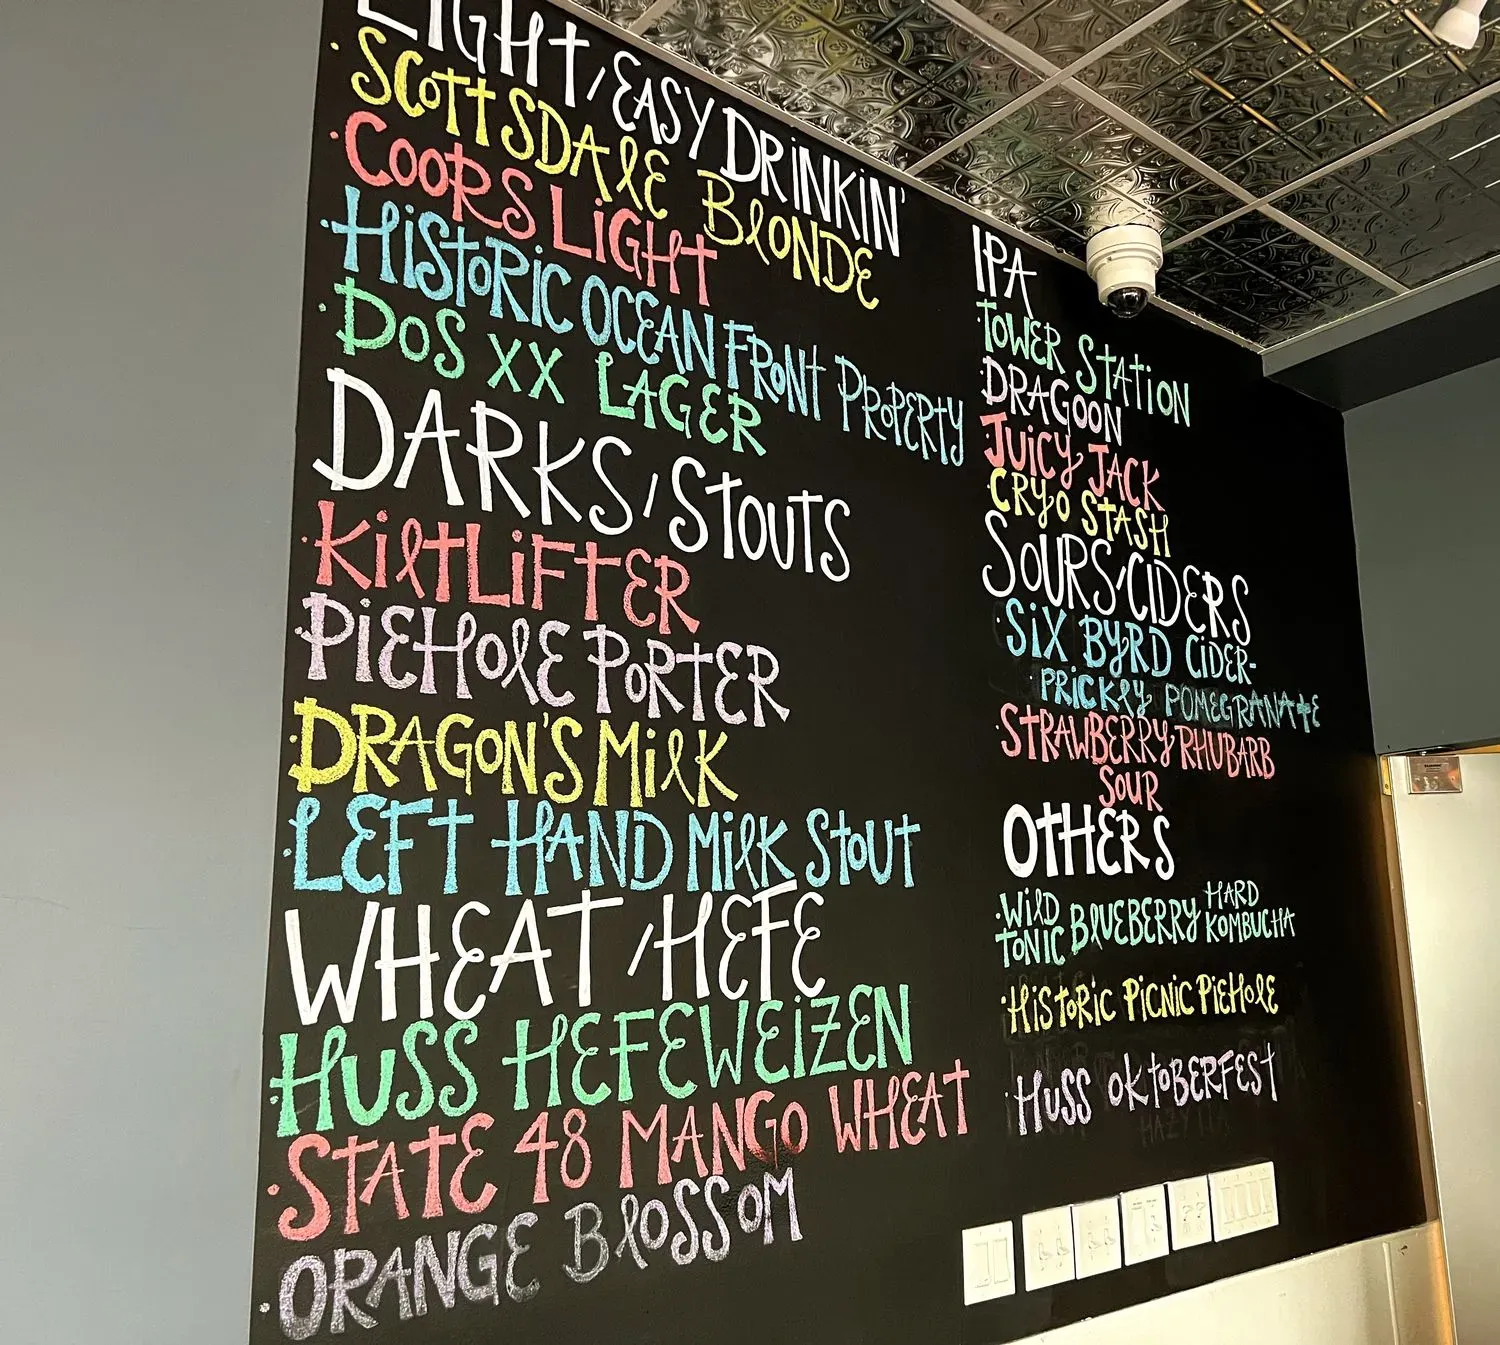 LIGHT/EASY DRINKIN'
· SCOTTSDALE BLONDE
· COORS LIGHT
· HISTORIC OCEAN FRONT PROPERTY
· DOS XX LAGER
DARKS/STOUTS
· KILTLIFTER
· PIEHOLE PORTER
· DRAGON'S MILK
· LEFT HAND MILK STOUT
WHEAT/HEFE
· HUSS HEFEWEIZEN
· STATE 48 MANGO WHEAT
· ORANGE BLOSSOM
IPA
· TOWER STATION
· DRAGOON
· JUICY JACK
· CRYO STASH
SOURS/CIDERS
· SIX BYRD CIDER-
· PRICKLY POMEGRANATE
· STRAWBERRY RHUBARB
SOUR
OTHERS
· WILD TONIC BLUEBERRY HARD KOMBUCHA
· HISTORIC PICNIC PIEHOLE
· HUSS OKTOBERFEST